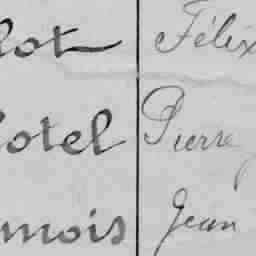 lot Félix
otel Pierre
mois Jean